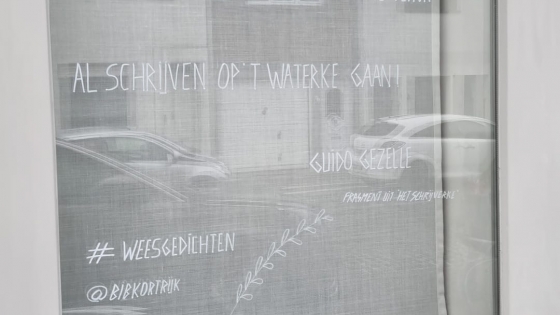 AL SCHRIJVEN OP 'T WATERKE GAAN!
GUIDO GEZELLE
FRAGMENT UIT 'HET SCHRIJVERKE'
# WEESGEDICHTEN
@BIBKORTRIJK